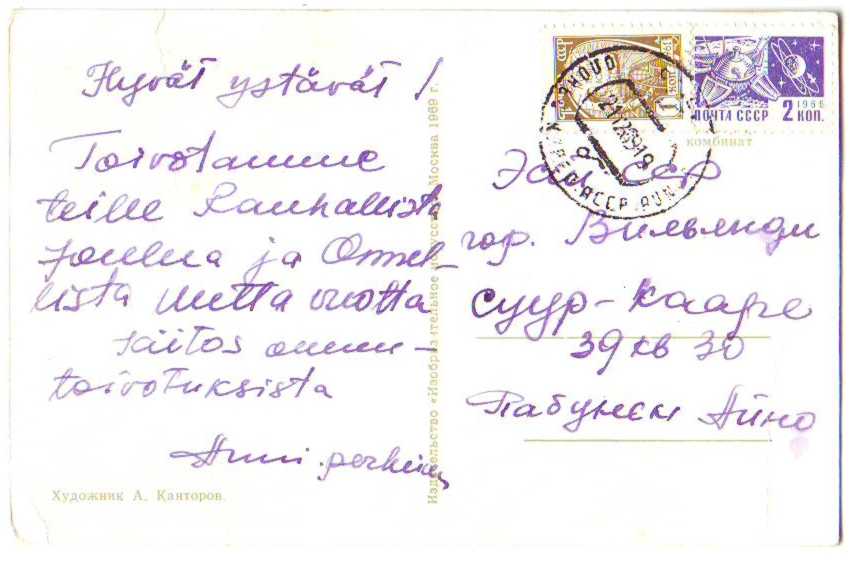 Hyvät ystävät!
Toivotamme
teille Rauhallista
Joulua ja Onnel-
lista Uutta vuotta
Kiitos onnen-
toivotuksista
Anni perheineen
Художник А. Канторов.
Издательство «Изобразительное искусство». Москва 1969 г.
1961
СССР
ПОЧТА
1
1966
ПОЧТА СССР 2 КОП.
комбинат
Эст ССР
гор. Вильянди
суур-Кааре
39 кв 30
Айно